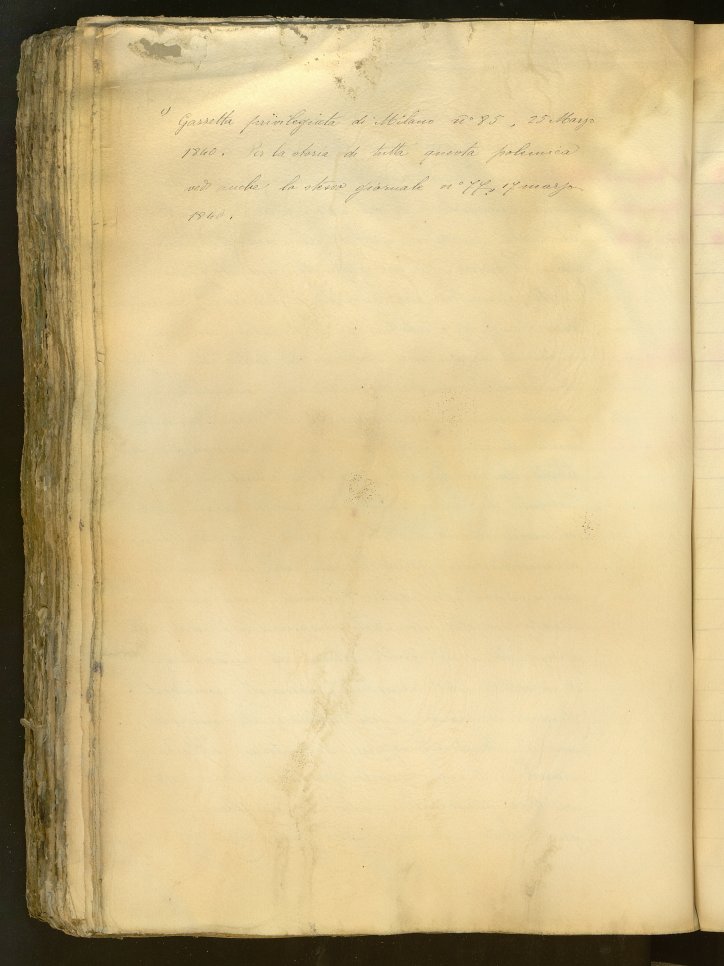 1) Gazzetta privilegiata di Milano n° 85, 25 Marzo
1840. Per la storia di tutta questa polemica
vedi anche lo stesso giornale n° 77, 17 marzo
1840.